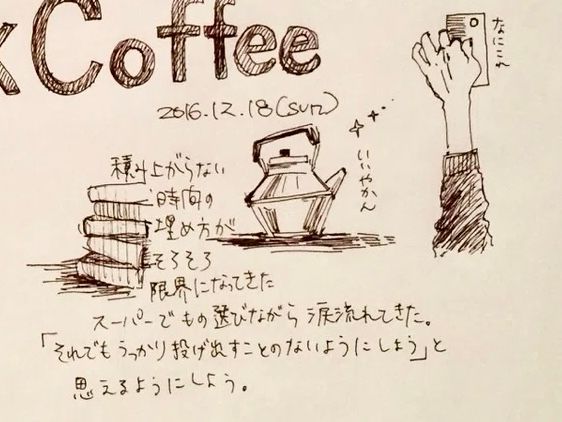 k Coffee
2016.12.18(sun)
なにこれ
いいやかん
積み上がらない
時間の
埋め方が
そろそろ
限界になってきた
スーパーでもの選びながら涙流れてきた。
「それでもうっかり投げ出すことのないようにしよう」と
思えるようにしよう。